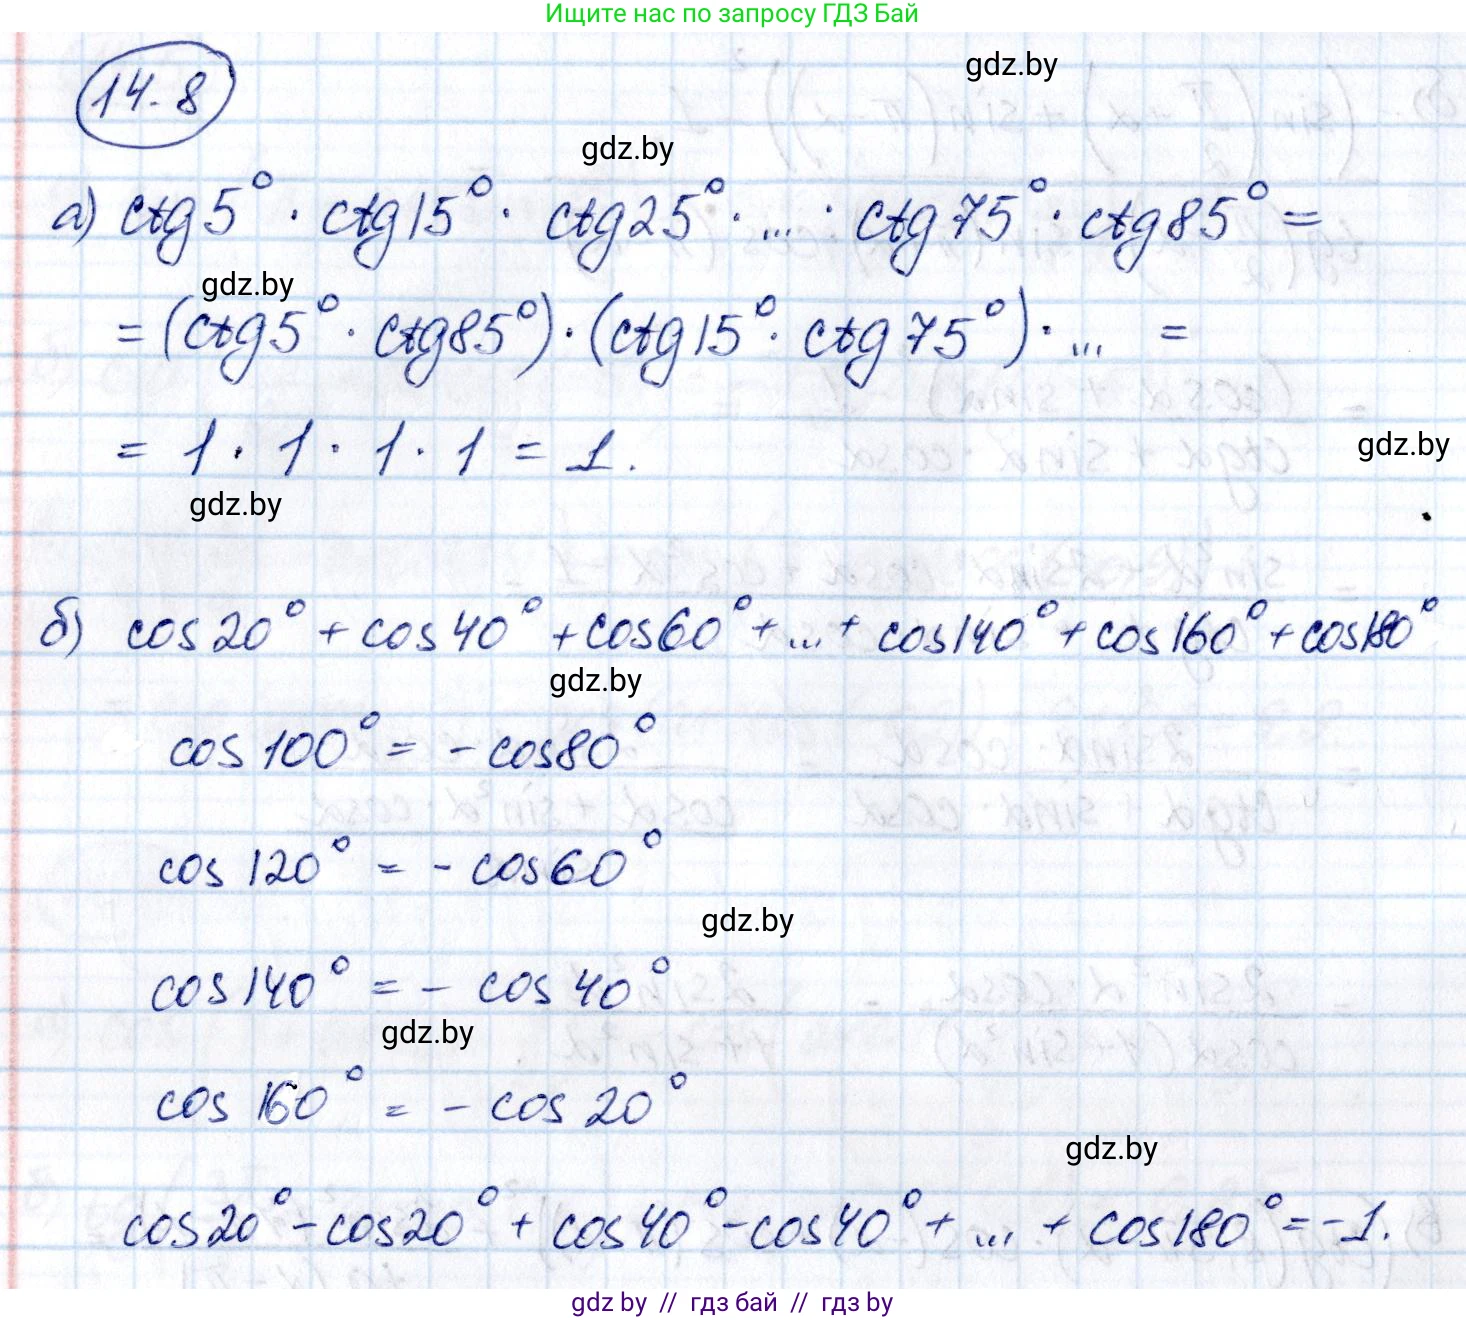 Ищите нас по запросу ГДЗ Бай
gdz.by
14.8
gdz.by
а) ctg5° · ctg15° · ctg25° · ... · ctg75° · ctg85° =
gdz.by
= (ctg5° · ctg85°) · (ctg15° · ctg75°) · ... =
= 1 · 1 · 1 · 1 = 1.
gdz.by
gdz.by
б) cos20° + cos40° + cos60° + ... + cos140° + cos160° + cos180°
gdz.by
cos100° = - cos80°
cos120° = - cos60°
gdz.by
cos140° = - cos40°
gdz.by
cos160° = - cos20°
gdz.by
cos20° - cos20° + cos40° - cos40° + ... + cos180° = -1.
gdz by // гдз бай // гдз by